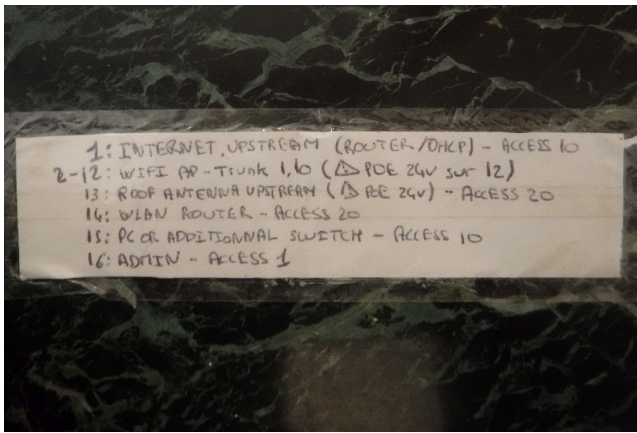 1: INTERNET UPSTREAM (ROUTER/DHCP) - ACCESS 10
2-12: WIFI AP - Trunk 1,10 (⚠ POE 24V sur 12)
13: ROOF ANTENNA UPSTREAM (⚠ POE 24V) - ACCESS 20
14: WLAN ROUTER - ACCESS 20
15: PC OR ADDITIONNAL SWITCH - ACCESS 10
16: ADMIN - ACCESS 1